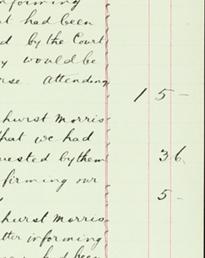 forming
had been
d by the Court
y would be
rse attending
1 5 -
hurst Morris
that we had
uested by them 3 6
firming our
5 -
hurst Morris
tter informing
had been